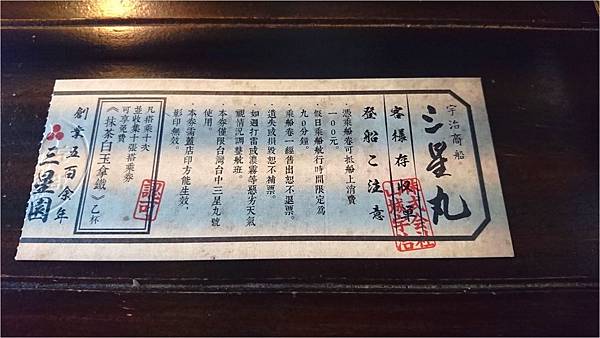 宇治商船
三星丸
客樣存收單
登船ご注意
・憑乘船卷可抵船上消費
一００元。
・假日乘船航行時間限定為
九０分鐘。
・乘船卷一經售出恕不退票。
・遺失或損毀恕不補票。
・如遇打雷或濃霧等惡劣天氣
視情況調整航班。
・本劵僅限台灣台中三星丸號
使用。
・本劵需蓋店印方能生效，
影印無效。
凡搭乘十次
並收集十張搭乘劵
可享免費
《抹茶白玉拿鐵》乙杯
認可
創業五百余年
三星園